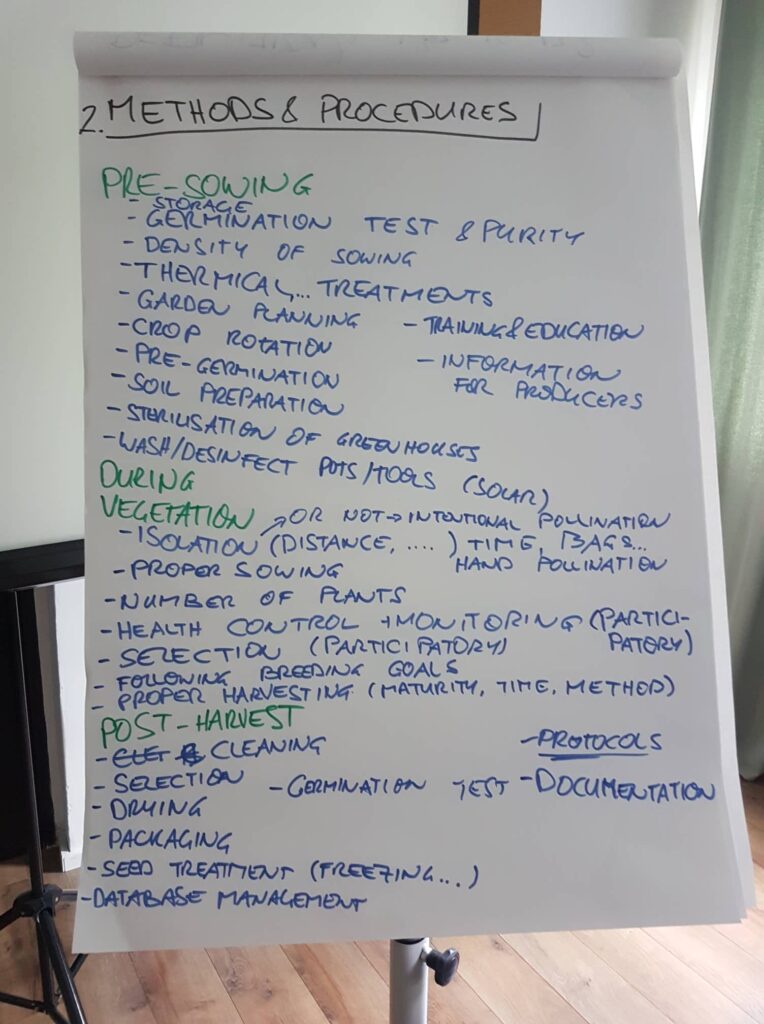 2. METHODS & PROCEDURES
PRE-SOWING
- STORAGE
- GERMINATION TEST & PURITY
- DENSITY OF SOWING
- THERMICAL,... TREATMENTS
- GARDEN PLANNING
- TRAINING & EDUCATION
- CROP ROTATION
- INFORMATION
FOR PRODUCERS
- PRE-GERMINATION
- SOIL PREPARATION
- STERILISATION OF GREENHOUSES
- WASH/DESINFECT POTS/TOOLS (SOLAR)
DURING
VEGETATION
↗ OR NOT → INTENTIONAL POLLINATION
- ISOLATION (DISTANCE, ....) TIME, BAGS...
HAND POLLINATION
- PROPER SOWING
- NUMBER OF PLANTS
- HEALTH CONTROL + MONITORING (PARTICI-
PATORY)
- SELECTION (PARTICIPATORY)
- FOLLOWING BREEDING GOALS
- PROPER HARVESTING (MATURITY, TIME, METHOD)
POST-HARVEST
- CLEANING
- PROTOCOLS
- SELECTION
- GERMINATION TEST
- DOCUMENTATION
- DRYING
- PACKAGING
- SEED TREATMENT (FREEZING...)
- DATABASE MANAGEMENT